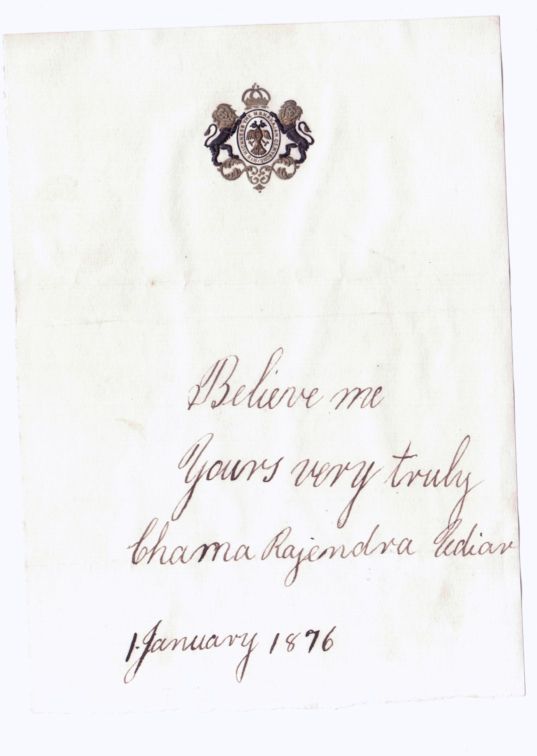 Believe me
Yours very truly
Chama Rajendra Udiar
1. January 1876